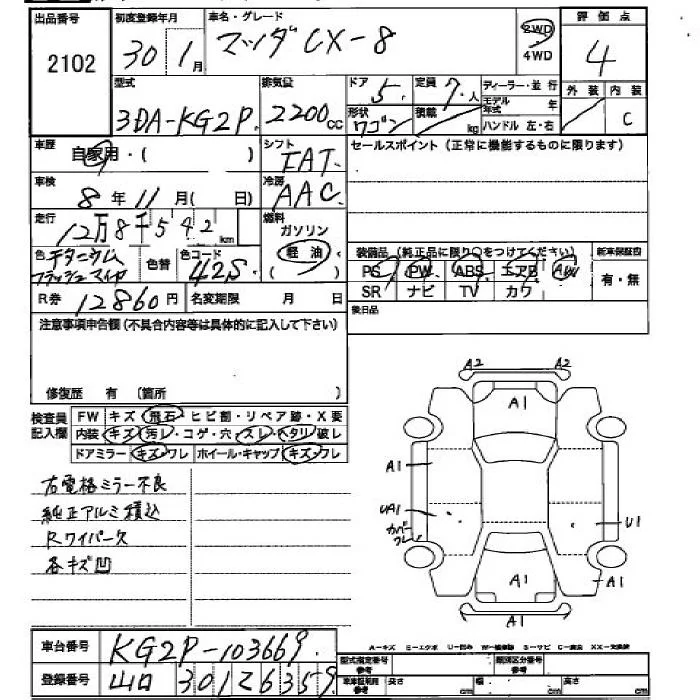 出品番号
2102
初度登録年月
30 1月
車名・グレード
マツダCX-8
2WD
4WD
評価点
4
外装 内装
C
型式
3DA-KG2P.
排気量
2200cc
ドア 5.
形状 ワゴン
定員 7.人
積載 kg
ディーラー・並行
モデル年式 年
ハンドル 左・右
車歴
自家用・( )
シフト
FAT.
セールスポイント（正常に機能するものに限ります）
車検
8年11月( 日)
冷房
AAC
走行
12万8千542km
燃料
ガソリン
軽油
( )
色 チタニウム
フラッシュマイカ
色替
色コード
42S
装備品（純正品に限り○をつけてください）
PS PW ABS エアB AW
SR ナビ TV カワ
新車保証書
有・無
R券 12860円
名変期限 月 日
後日品
注意事項申告欄（不具合内容等は具体的に記入して下さい）
修復歴 有 〔箇所 〕
検査員
記入欄
FW キズ・飛石・ヒビ割・リペア跡・X要
内装 キズ・汚レ・コゲ・穴・スレ・ヘタリ・破レ
ドアミラー キズ・ワレ ホイール・キャップ キズ・ワレ
右電格ミラー不良
純正アルミ積込
Rワイパー欠
各キズ凹
A2 A2
A1
A1
UA1
カバーワレ
U1
A1
A1
A1
A-キズ E-エクボ U-凹み W-補修跡 S-サビ C-腐食 XX-交換済
車台番号
KG2P-103669.
登録番号
山口 301 ﾋ 6359
型式指定番号 参考
類別区分番号 参考
長さ cm 幅 cm 高さ cm